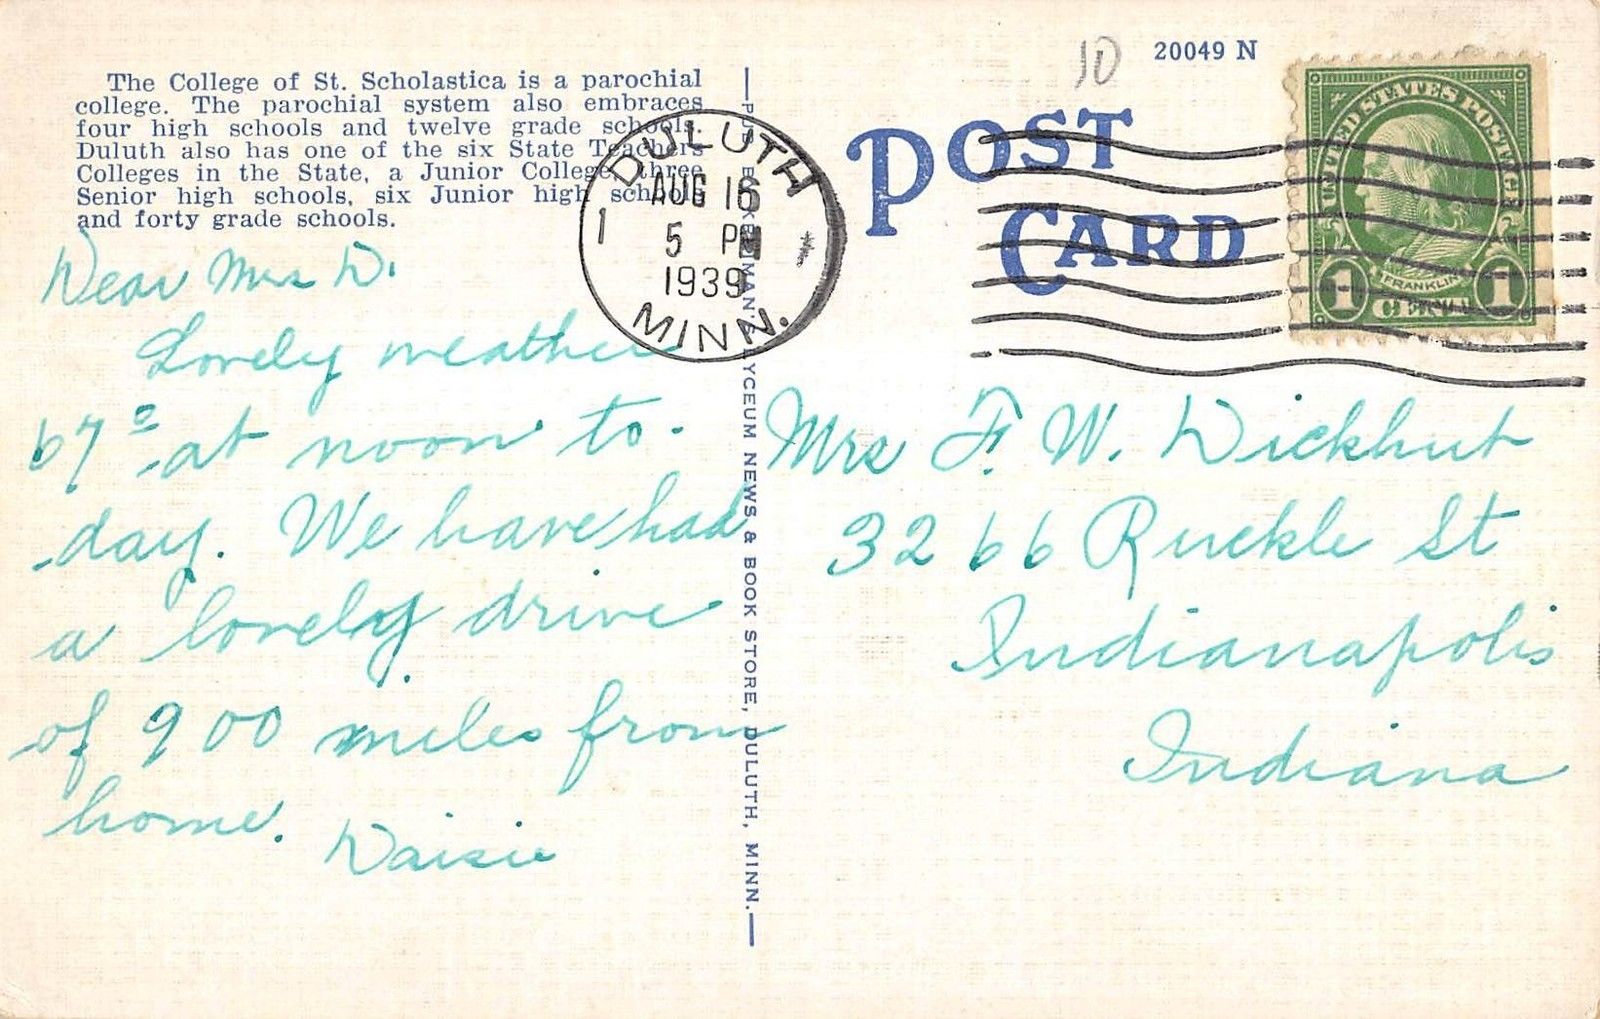 The College of St. Scholastica is a parochial
college. The parochial system also embraces
four high schools and twelve grade schools.
Duluth also has one of the six State Teachers
Colleges in the State, a Junior College, three
Senior high schools, six Junior high schools
and forty grade schools.
DULUTH
1
AUG 16
5 PM
1939
MINN.
Dear Mrs D.
Lovely weather
67° at noon to-
day. We have had
a lovely drive
of 900 miles from
home.
Daisie
PUB. BY KERNMAN'S LYCEUM NEWS & BOOK STORE, DULUTH, MINN.
10
20049 N
POST
CARD
UNITED STATES POSTAGE
FRANKLIN
1 1
Mrs F. W. Dickhut
3266 Ruckle St
Indianapolis
Indiana